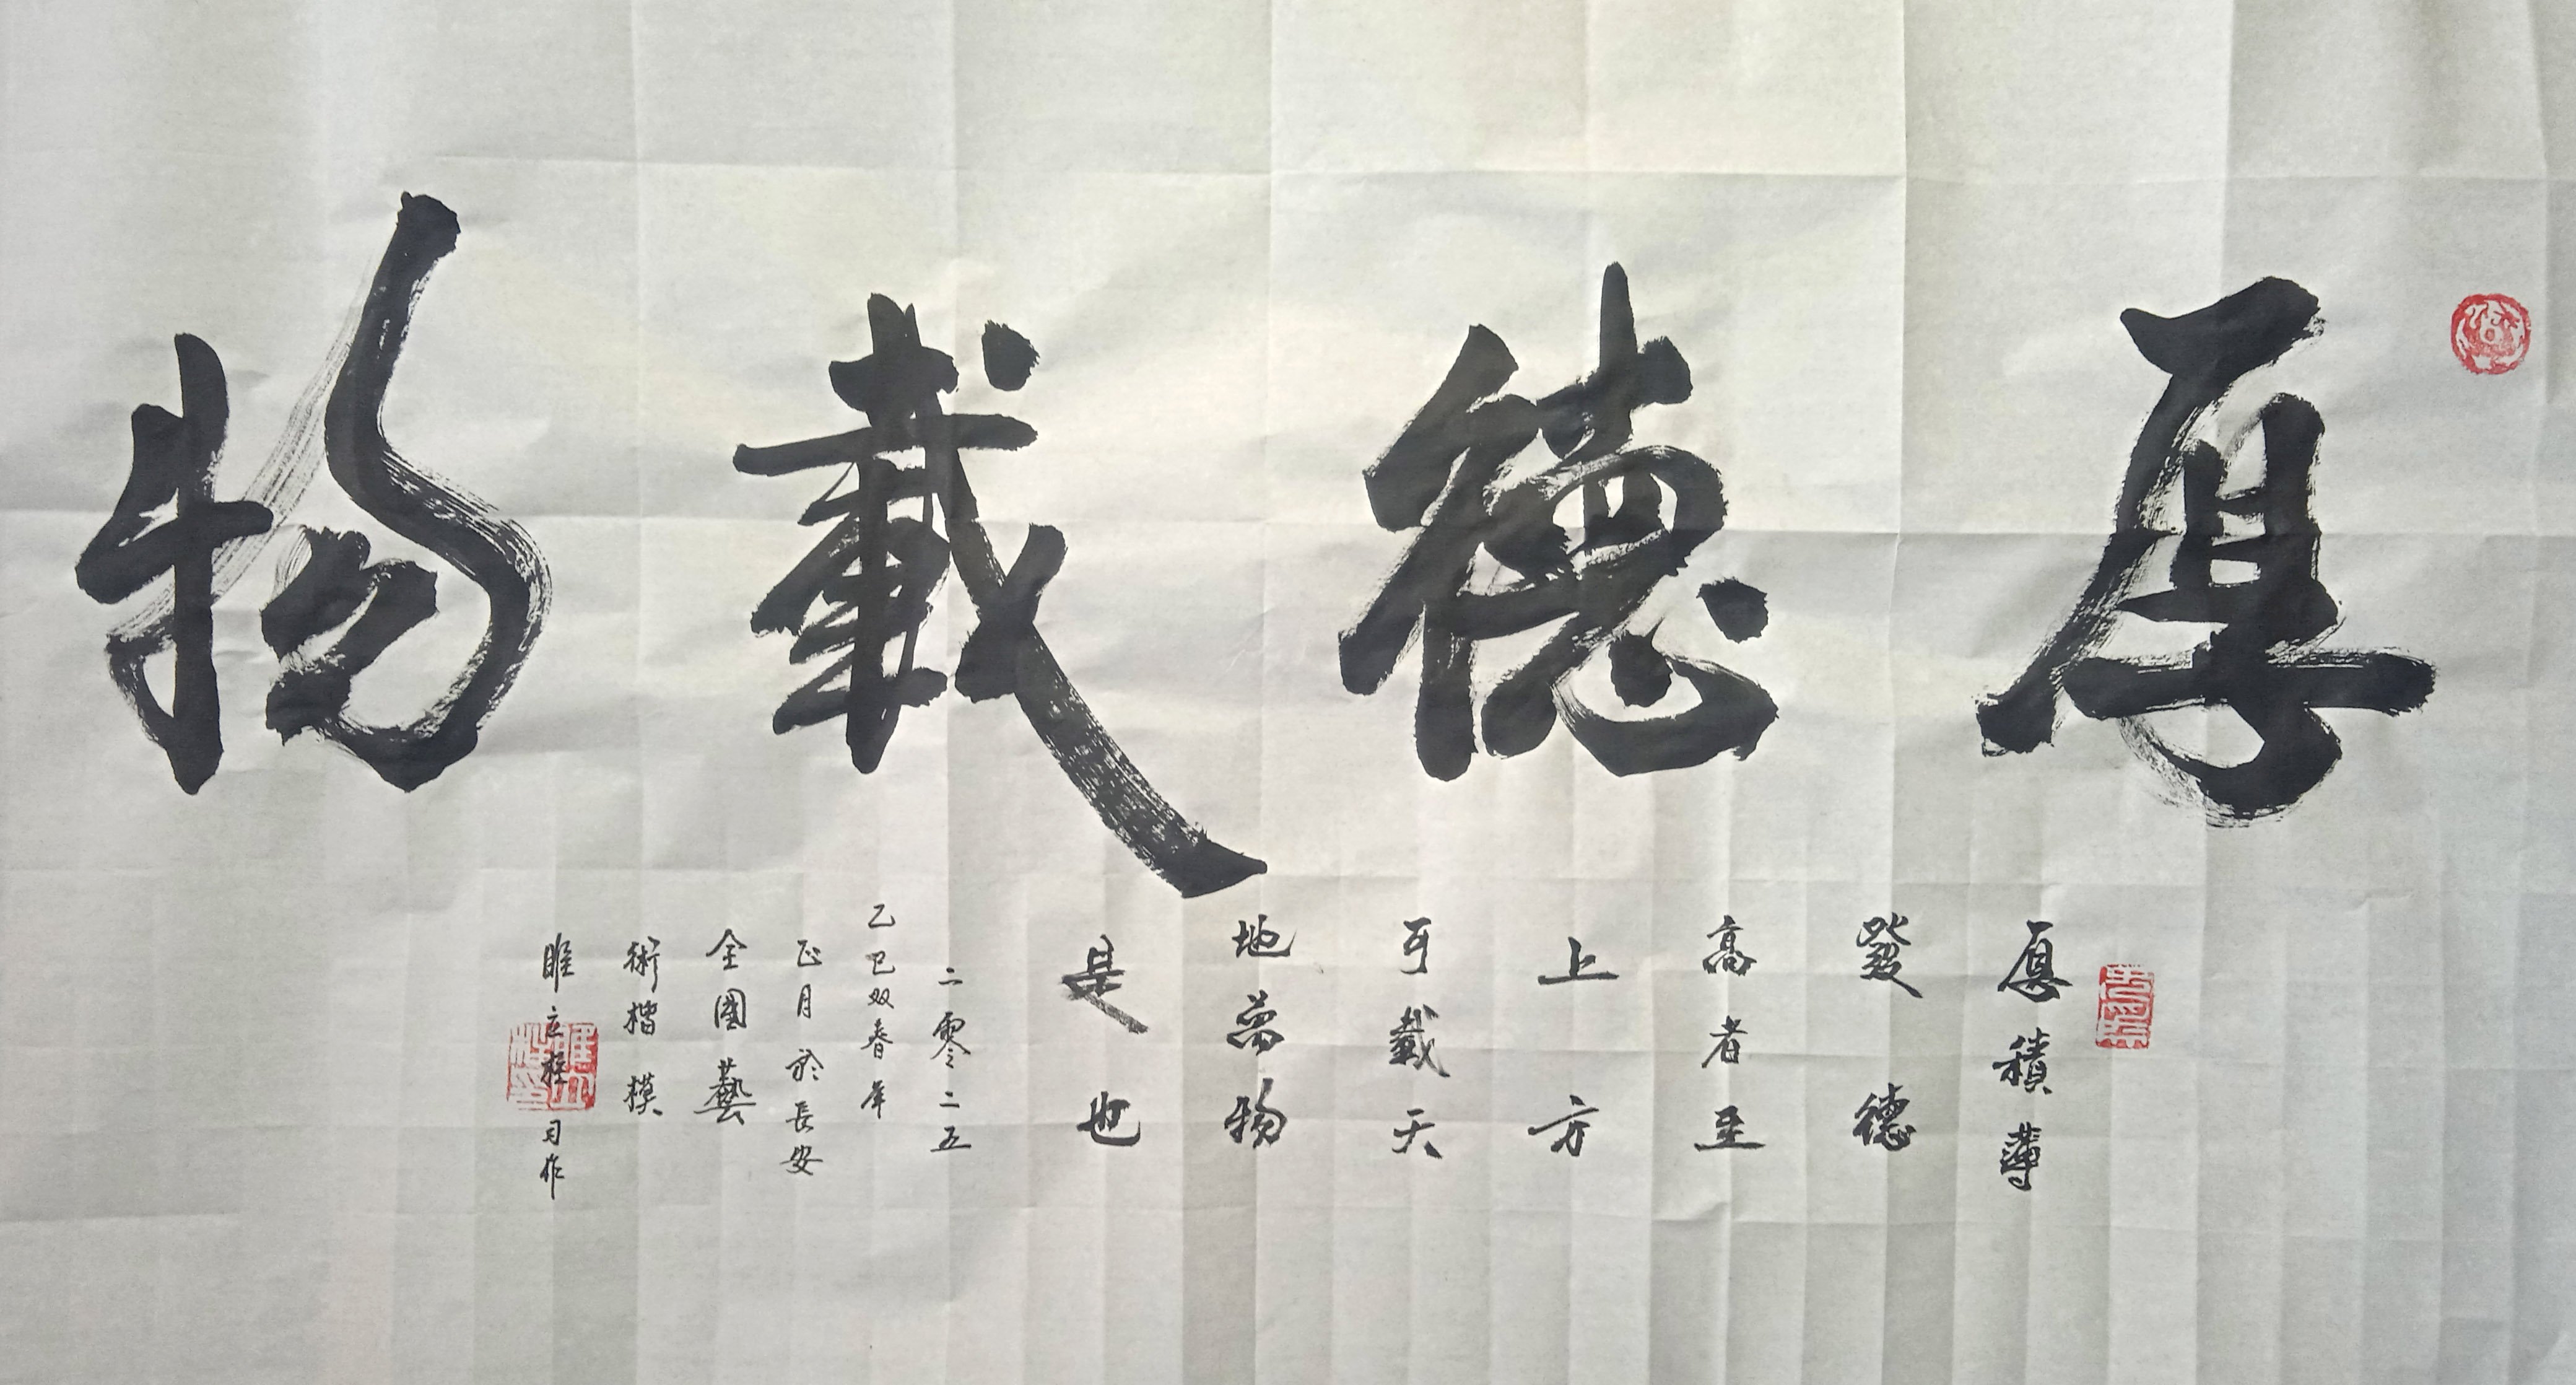 厚德載物
厚積薄
發德
高者至
上方
可載天
地萬物
是也
二零二五
乙巳双春年
正月於長安
全國藝
術楷模
睢立程習作